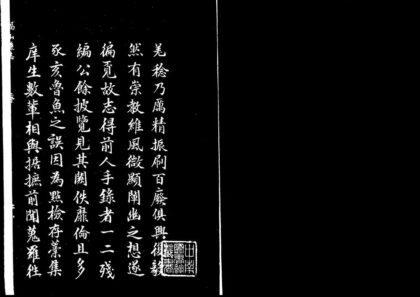 羌稔乃厲精振刷百廢俱興復毅
然有崇教維風微顯闡幽之想遂
徧覓故志得前人手錄者一二殘
編公餘披覽見其闕佚靡倫且多
豕亥魯魚之誤因為點檢存藁集
庠生數輩相與掂摭前聞蒐羅往